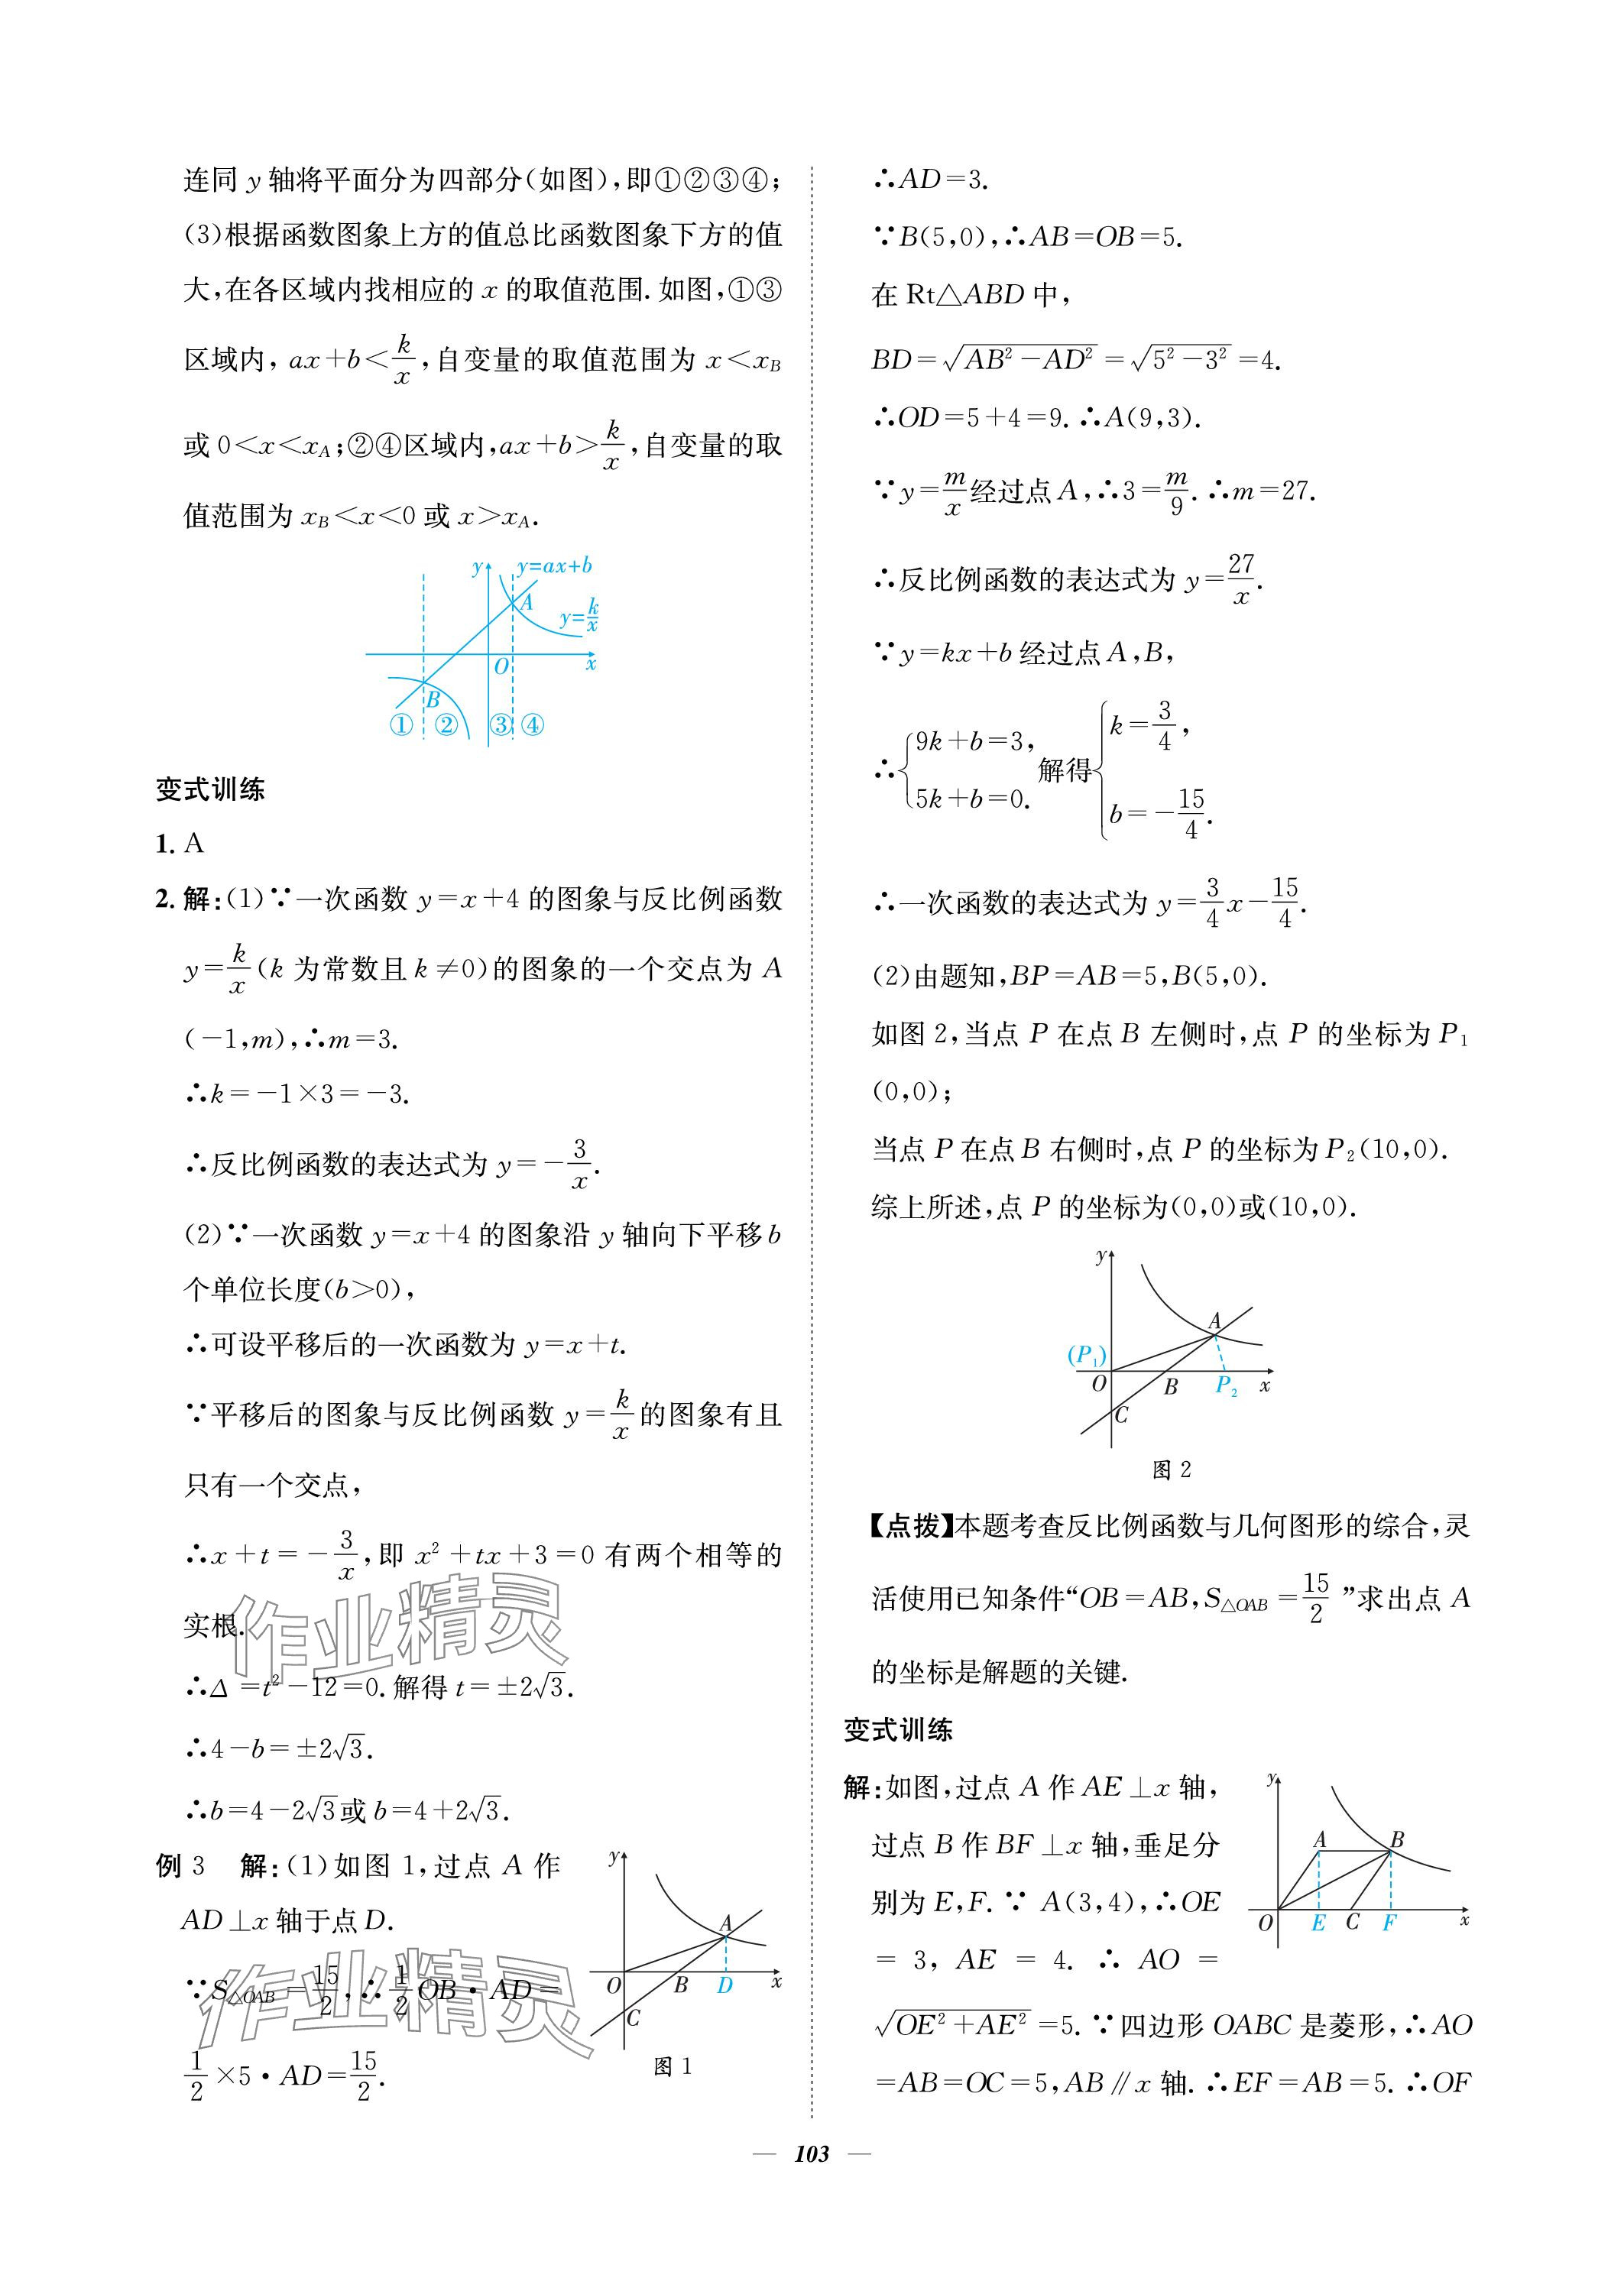 连同 y 轴将平面分为四部分(如图),即①②③④;
(3)根据函数图象上方的值总比函数图象下方的值
大,在各区域内找相应的 x 的取值范围. 如图,①③
区域内, ax+b<k/x,自变量的取值范围为 x<x_B
或 0<x<x_A;②④区域内,ax+b>k/x,自变量的取
值范围为 x_B<x<0 或 x>x_A.
y y=ax+b
A
y=k/x
O x
B
① ② ③ ④
变式训练
1. A
2. 解:(1)∵一次函数 y=x+4 的图象与反比例函数
y=k/x(k 为常数且 k≠0)的图象的一个交点为 A
(-1,m),∴m=3.
∴k=-1×3=-3.
∴反比例函数的表达式为 y=-3/x.
(2)∵一次函数 y=x+4 的图象沿 y 轴向下平移 b
个单位长度(b>0),
∴可设平移后的一次函数为 y=x+t.
∵平移后的图象与反比例函数 y=k/x 的图象有且
只有一个交点,
∴x+t=-3/x,即 x²+tx+3=0 有两个相等的
实根.
∴Δ=t²-12=0. 解得 t=±2√3.
∴4-b=±2√3.
∴b=4-2√3或 b=4+2√3.
例 3 解:(1)如图 1,过点 A 作
AD⊥x 轴于点 D.
∵S△OAB=15/2,∴1/2 OB·AD=
1/2×5·AD=15/2.
y
A
O B D x
C
图 1
作业精灵
作业精灵
∴AD=3.
∵B(5,0),∴AB=OB=5.
在 Rt△ABD 中,
BD=√(AB²-AD²)=√(5²-3²)=4.
∴OD=5+4=9. ∴A(9,3).
∵y=m/x经过点 A,∴3=m/9. ∴m=27.
∴反比例函数的表达式为 y=27/x.
∵y=kx+b 经过点 A,B,
∴{9k+b=3, 5k+b=0. 解得{k=3/4, b=-15/4.
∴一次函数的表达式为 y=3/4x-15/4.
(2)由题知,BP=AB=5,B(5,0).
如图 2,当点 P 在点 B 左侧时,点 P 的坐标为 P₁
(0,0);
当点 P 在点 B 右侧时,点 P 的坐标为 P₂(10,0).
综上所述,点 P 的坐标为(0,0)或(10,0).
y
A
(P₁)
O B P₂ x
C
图 2
【点拨】本题考查反比例函数与几何图形的综合,灵
活使用已知条件“OB=AB,S△OAB=15/2”求出点 A
的坐标是解题的关键.
变式训练
解:如图,过点 A 作 AE⊥x 轴,
过点 B 作 BF⊥x 轴,垂足分
别为 E,F. ∵ A(3,4),∴OE
=3,AE=4. ∴AO=
√(OE²+AE²)=5. ∵四边形 OABC 是菱形,∴AO
=AB=OC=5,AB∥x 轴. ∴EF=AB=5. ∴OF
y
A B
O E C F x
— 103 —